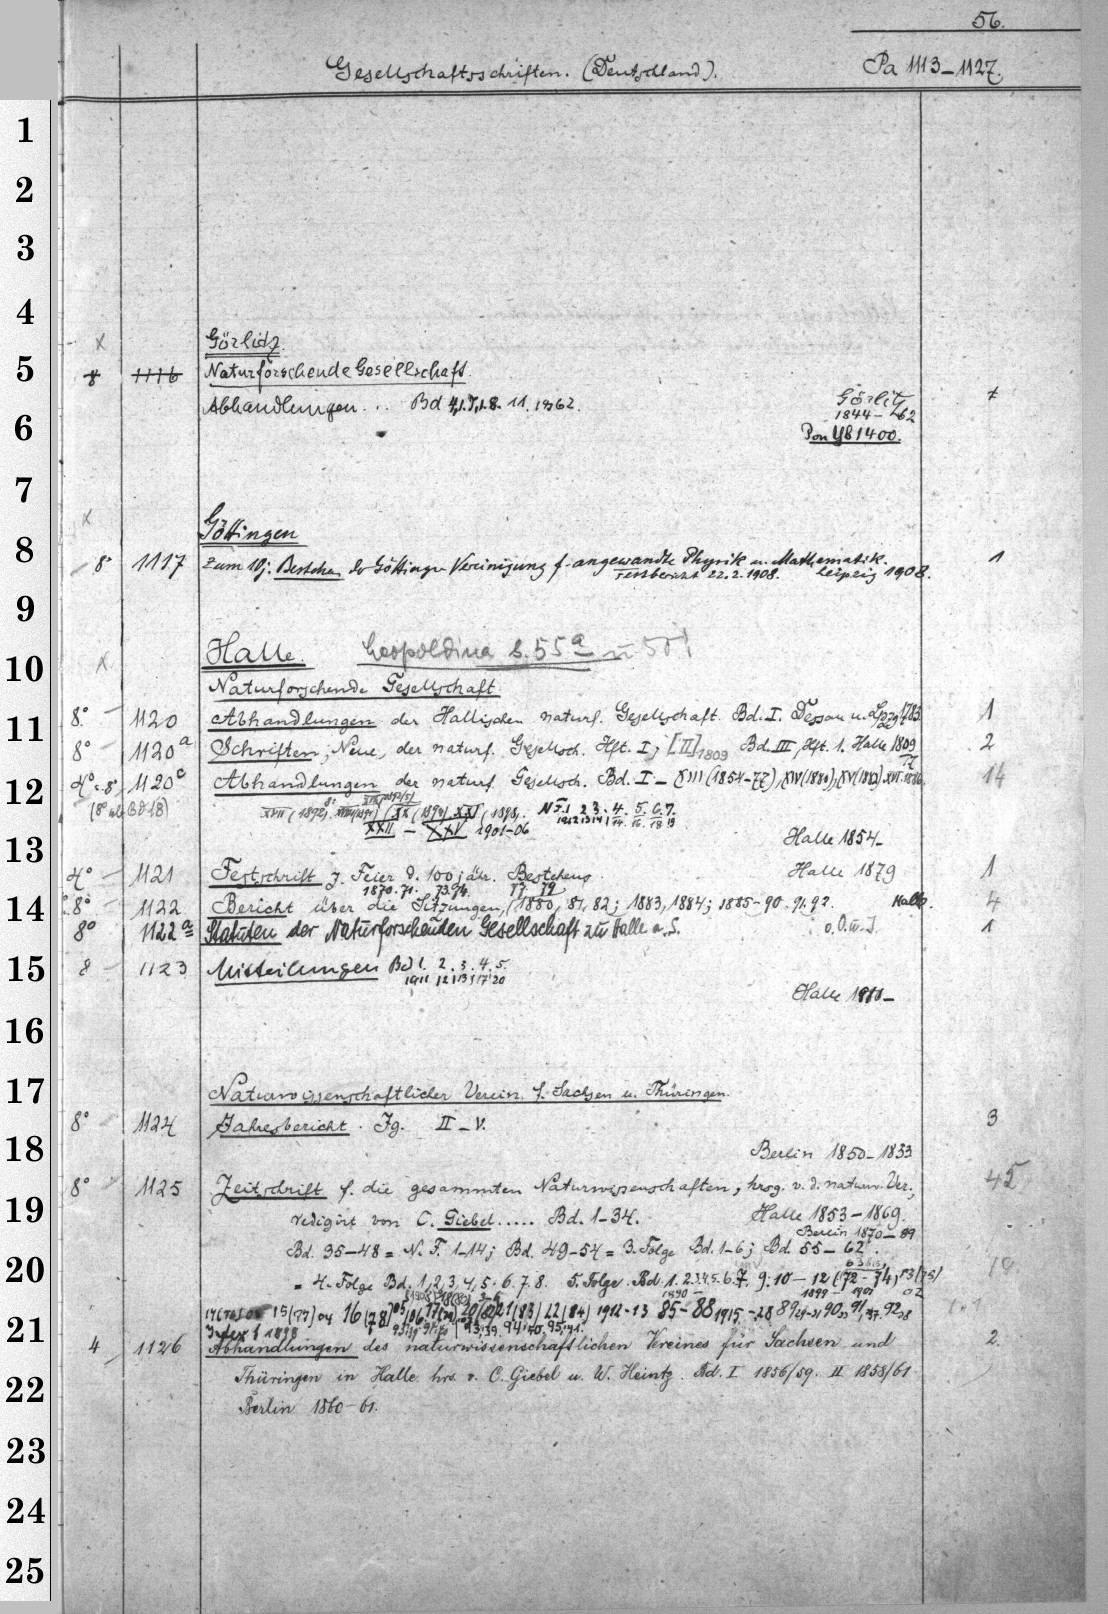 56.
Gesellschaftsschriften. (Deutschland). Pa 1113-1127.
1
2
3
4
Görlitz.
5
8 1116 Naturforschende Gesellschaft.
Abhandlungen... Bd
Görlitz
1844-62
6
Pon Yb 1400.
7
Göttingen
8
8° 1117 Zum 10j. Bestehen der Göttinger Vereinigung f. angewandte Physik u. Mathematik. 1
Festbericht 22.2.1908. Leipzig 1908.
9
Halle. Leopoldina s. 55a
10
Naturforschende Gesellschaft
8° 1120 Abhandlungen der Hallischen naturf. Gesellschaft. Bd. I. Dessau u. Lpzg 1783. 1
11
8° 1120a Schriften, Neue, der naturf. Gesellsch. Hft. I; [II] 1809 Bd. III, Hft. 1. Halle 1809 2
12
4° 1120c Abhandlungen der naturf. Gesellsch. Bd. I - XIII (1854-77), XIV (1880), XV (1882), 14
XXII - XXV 1901-06
N.F. 1. 2. 3. 4. 5. 6. 7.
Halle 1854-
13
4° 1121 Festschrift z. Feier d. 100jähr. Bestehens Halle 1879 1
1870. 71. 73. 74. 77. 79
14
8° 1122 Bericht über die Sitzungen, (1880, 81, 82; 1883, 1884; 1885-90. 91. 92. Halle. 4
8° 1122a Statuten der Naturforschenden Gesellschaft zu Halle a. S. o. O. u. J. 1
15
8 1123 Mitteilungen Bd 1. 2. 3. 4. 5.
1911 12 13 17 20
Halle 1911-
16
17
Naturwissenschaftlicher Verein f. Sachsen u. Thüringen.
8° 1124 Jahresbericht. Jg. II-V. 3
18
Berlin 1850-1833
8° 1125 Zeitschrift f. die gesammten Naturwissenschaften, hrsg. v. d. naturw. Ver., 45
19
redigirt von C. Giebel..... Bd. 1-34. Halle 1853-1869.
Berlin 1870-89
Bd. 35-48 = N. F. 1-14; Bd. 49-54 = 3. Folge Bd. 1-6; Bd. 55-62.
20
= 4. Folge Bd. 1, 2, 3, 4, 5. 6. 7. 8. 5. Folge. Bd. 1. 2. 3. 4. 5. 6. 7. 9. 10-12 (72-74)
1912-13 85-88 1915-28
21
4 1126 Abhandlungen des naturwissenschaftlichen Vereines für Sachsen und 2.
22
Thüringen in Halle hrs. v. C. Giebel u. W. Heintz. Bd. I 1856/59. II 1858/61
Berlin 1860-61.
23
24
25